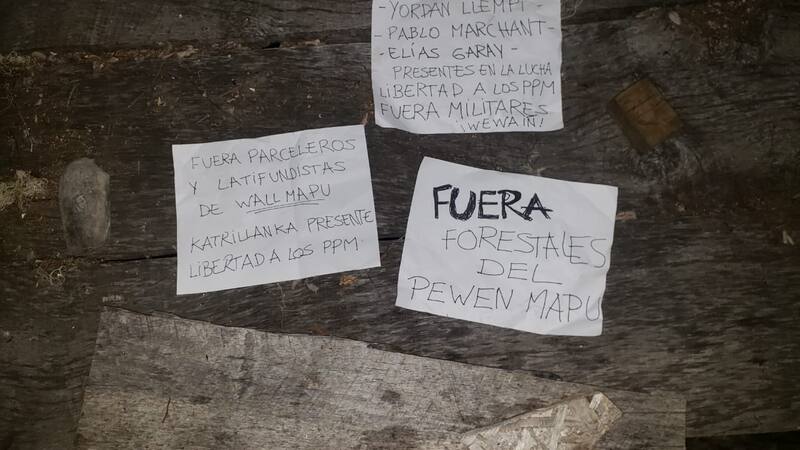 - YORDAN LLEMPI -
- PABLO MARCHANT -
- ELÍAS GARAY -
PRESENTES EN LA LUCHA
LIBERTAD A LOS PPM
FUERA MILITARES
¡WEWAIÑ!
FUERA PARCELEROS
Y LATIFUNDISTAS
DE WALLMAPU
KATRILLANKA PRESENTE
LIBERTAD A LOS PPM
FUERA
FORESTALES
DEL
PEWEN MAPU